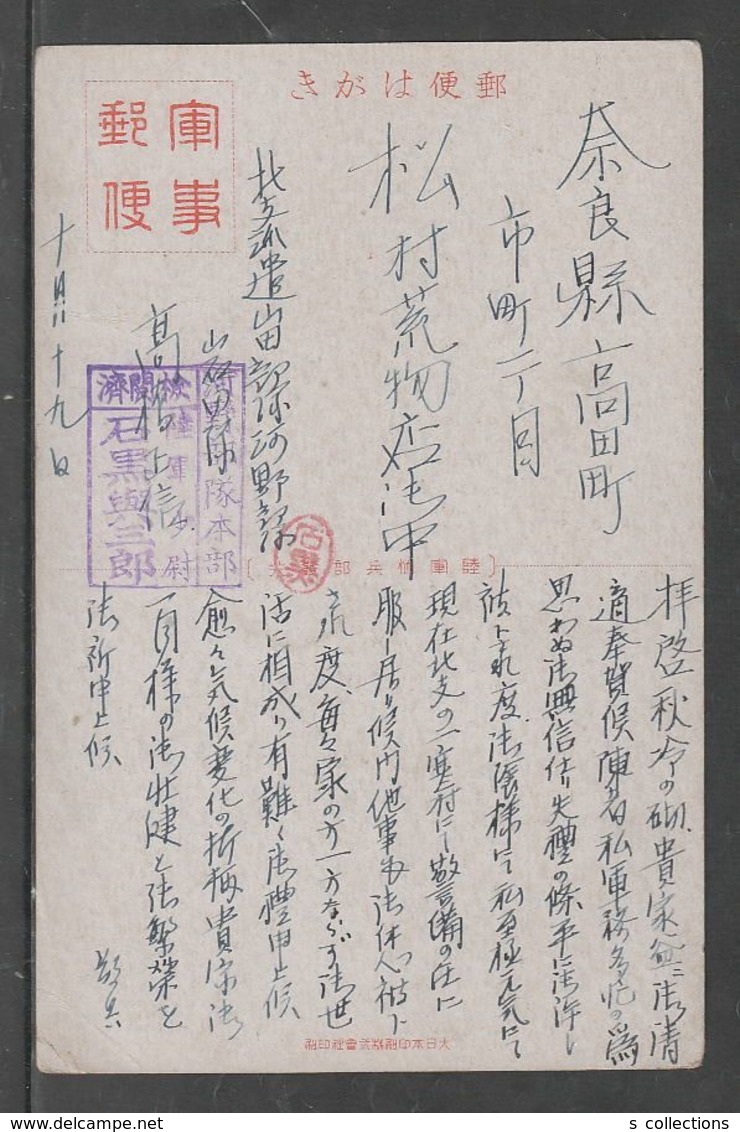 郵便はがき
軍事郵便
奈良縣高田町
市町二丁目
松村荒物店御中
北支派遣山田部隊河野部隊
山砲 隊
高 信
十月二十九日
隊本部
陸軍 尉
檢閲濟
石黒與三郎
石黒
拝啓秋冷の砌、貴家益々御清
適奉賀候陳者私軍務多忙の為
思わぬ御無信仕り失禮の條平に御許し
被下され度、御蔭様にて私至極元気にて
現在北支の一寒村にて警備の任に
服し居り候間他事乍御休心被下
れ度、毎々家の方一方ならず御世
話に相成り有難く御禮申上候
愈々気候変化の折柄貴家御
一同様の御壮健と御繁榮を
御祈申上候
敬具
大日本印刷株式會社印刷
s collections